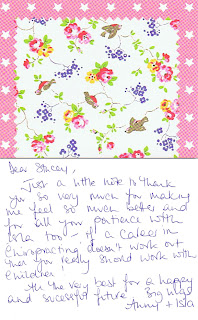 Dear Stacey,
Just a little note to thank
you so very much for making
me feel so much better and
for all your patience with
Isla too - if a career in
Chiropracting doesn't work out
then you really should work with
Children!
All the very best for a happy
and sucessful future. Big Hugs
+ Isla